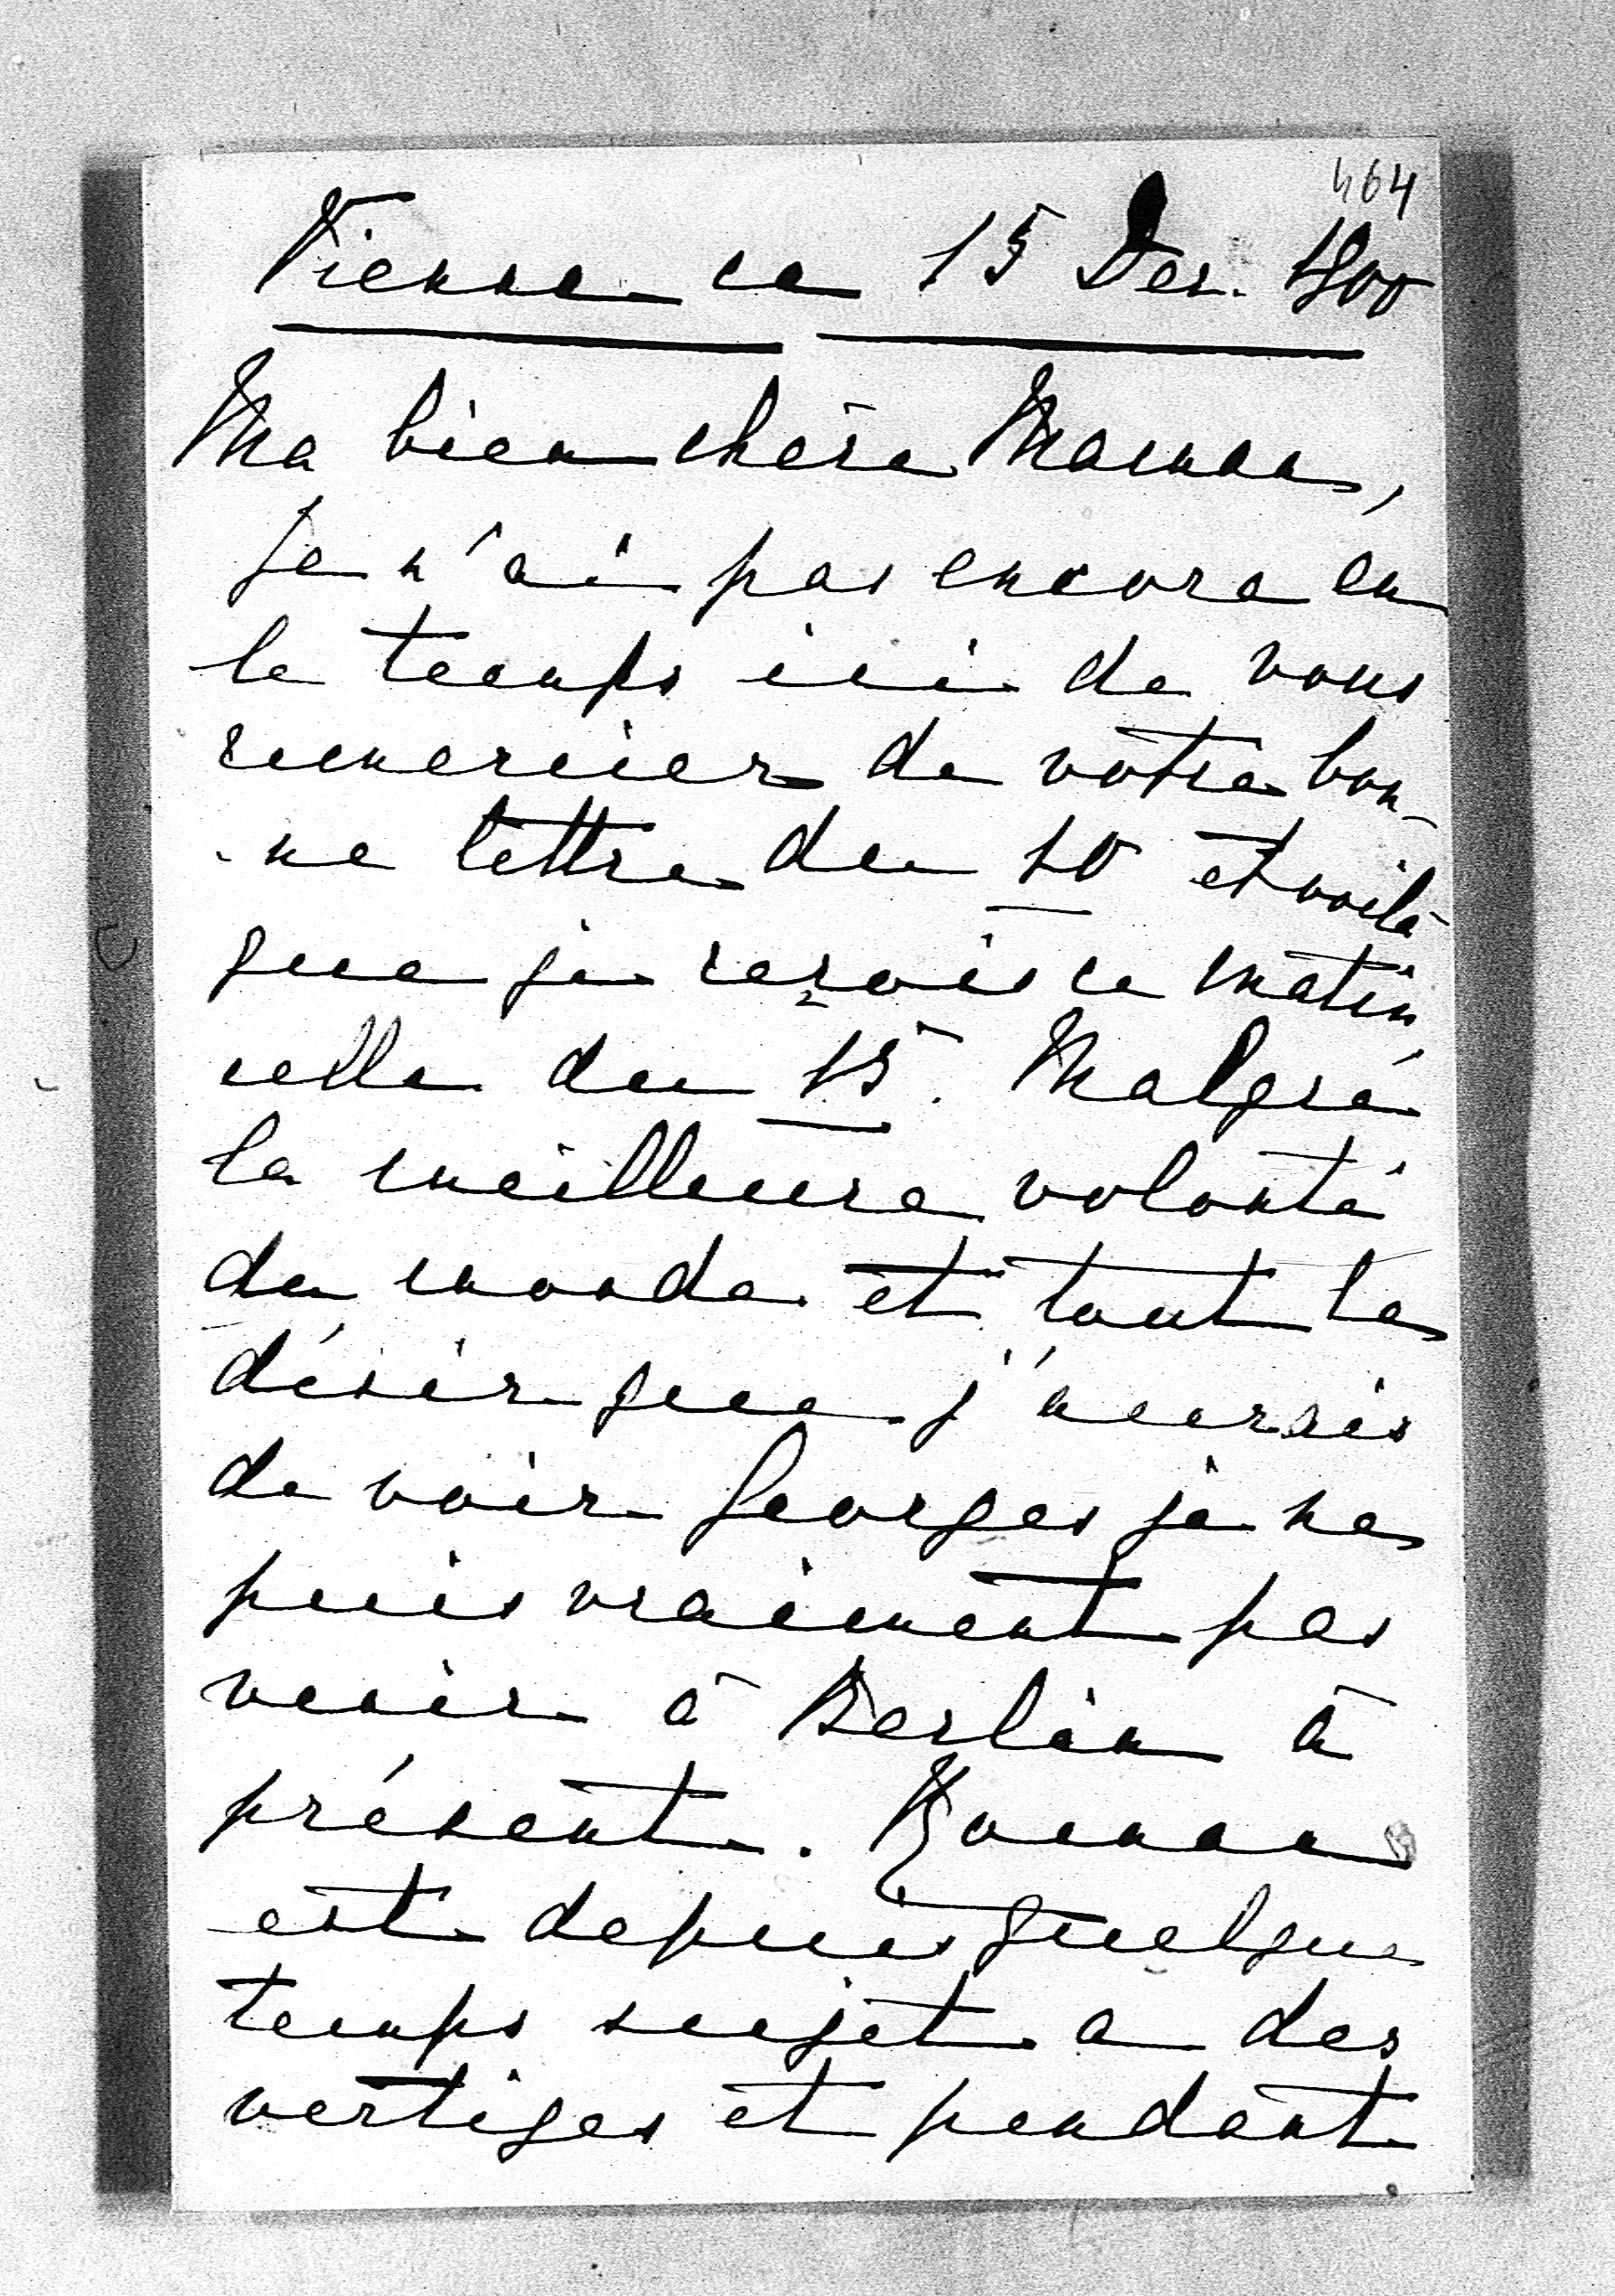 464
Vienne ce 15 Dec. 1900
Ma bien chère Maman,
Je n'ai pas encore eu
le temps ici de vous
remercier de votre bon-
-ne lettre du 10 et voilà
que je reçois ce matin
celle du 15. Malgré
la meilleure volonté
du monde et tout le
désir que j'aurais
de voir Georges je ne
puis vraiment pas
venir à Berlin à
présent. Roman
est depuis quelque
temps sujet a des
vertiges et pendant